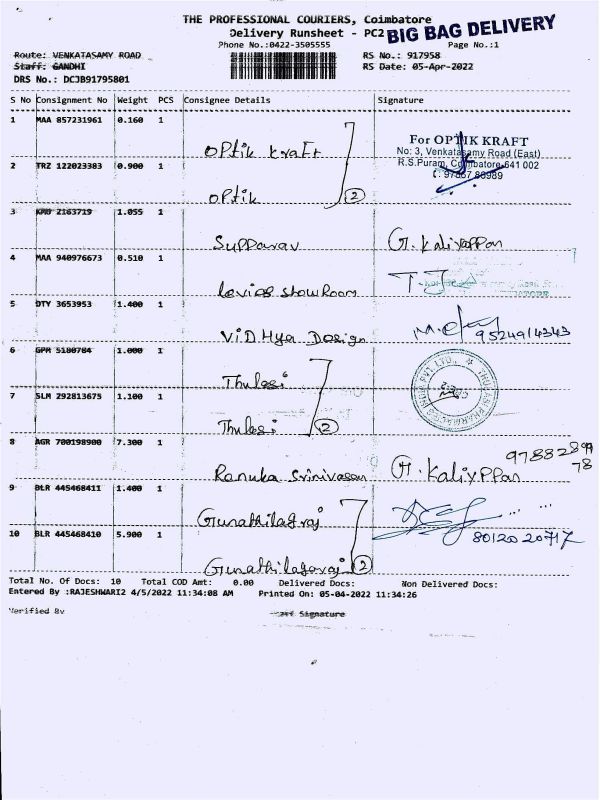 THE PROFESSIONAL COURIERS, Coimbatore
Delivery Runsheet - PC2
BIG BAG DELIVERY
Phone No.:0422-3505555 Page No.:1
Route: VENKATASAMY ROAD RS No.: 917958
Staff: GANDHI RS Date: 05-Apr-2022
DRS No.: DCJB91795801
S No Consignment No Weight PCS Consignee Details Signature
1 MAA 857231961 0.160 1
Optik Kraft
For OPTIK KRAFT
No: 3, Venkatasamy Road (East)
R.S.Puram, Coimbatore-641 002
2 TRZ 122023383 0.900 1
Optik 2
3 2163719 1.055 1
Supparav G. Kaliyappan
4 MAA 940976673 0.510 1
Levies Show Room T.J
5 DTY 3653953 1.400 1
ViDHya Design 9524914343
6 GPR 5180784 1.000 1
Thulasi
7 SLM 292813675 1.100 1
Thulasi 2
8 AGR 700198900 7.300 1
Renuka Srinivasan G. Kaliyppan
9 BLR 445468411 1.400 1
Gunathilagraj
10 BLR 445468410 5.900 1
80120 20717
Gunathilagaraj 2
Total No. Of Docs: 10 Total COD Amt: 0.00 Delivered Docs: Non Delivered Docs:
Entered By :RAJESHWARI2 4/5/2022 11:34:08 AM Printed On: 05-04-2022 11:34:26
Verified By Staff Signature